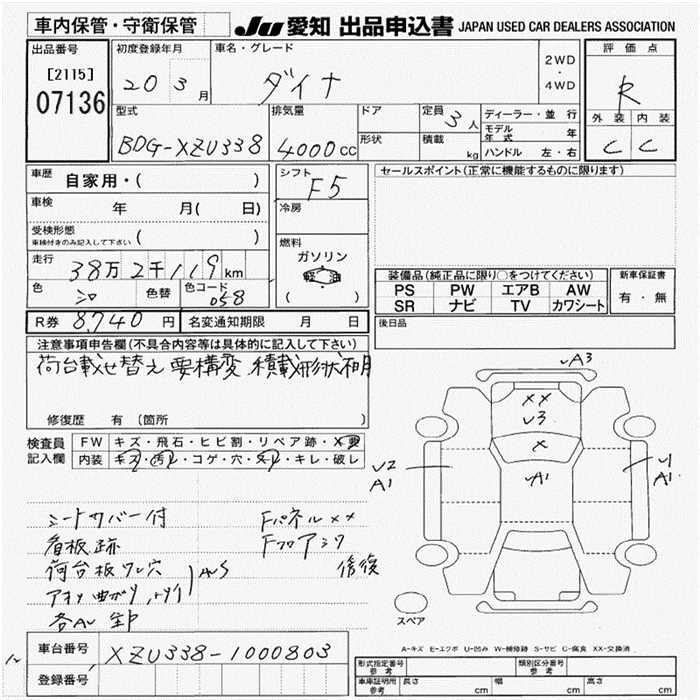 車内保管・守衛保管
JU 愛知 出品申込書 JAPAN USED CAR DEALERS ASSOCIATION
出品番号
[2115]
07136
初度登録年月
20 3 月
車名・グレード
ダイナ
2WD
・
4WD
評価点
R
外装 内装
C C
型式
BDG-XZU338
排気量
4000 cc
ドア
形状
定員 3 人
積載 kg
ディーラー・並行
モデル年式 年
ハンドル 左・右
車歴 自家用・( )
車検 年 月( 日)
受検形態
車検付きのみ記入して下さい ( )
走行 38万2千119 km
色 シロ 色替 色コード 058
シフト F5
冷房
燃料
ガソリン
軽油
( )
セールスポイント(正常に機能するものに限ります)
装備品(純正品に限り○をつけてください)
PS PW エアB AW
SR ナビ TV カワシート
新車保証書
有・無
R券 8,740 円 名変通知期限 月 日
後日品
注意事項申告欄(不具合内容等は具体的に記入して下さい)
荷台載せ替え 要構変 積載形状不明
修復歴 有 (箇所 )
検査員
記入欄
FW キズ・飛石・ヒビ割・リペア跡・X要
内装 キズ・汚レ・コゲ・穴・スレ・キレ・破レ
シートカバー付
看板跡
荷台板ワレ穴
各AU
Fパネルxx
修復
A3
xx
U3
x
A1
U2
A1
U1
A1
スペア
A-キズ E-エクボ U-凹み W-補修跡 S-サビ C-腐食 XX-交換済
車台番号 XZU338-1000803
登録番号
形式指定番号
参考
類別区分番号
参考
車庫証明用
参考
長さ cm 幅 cm 高さ cm